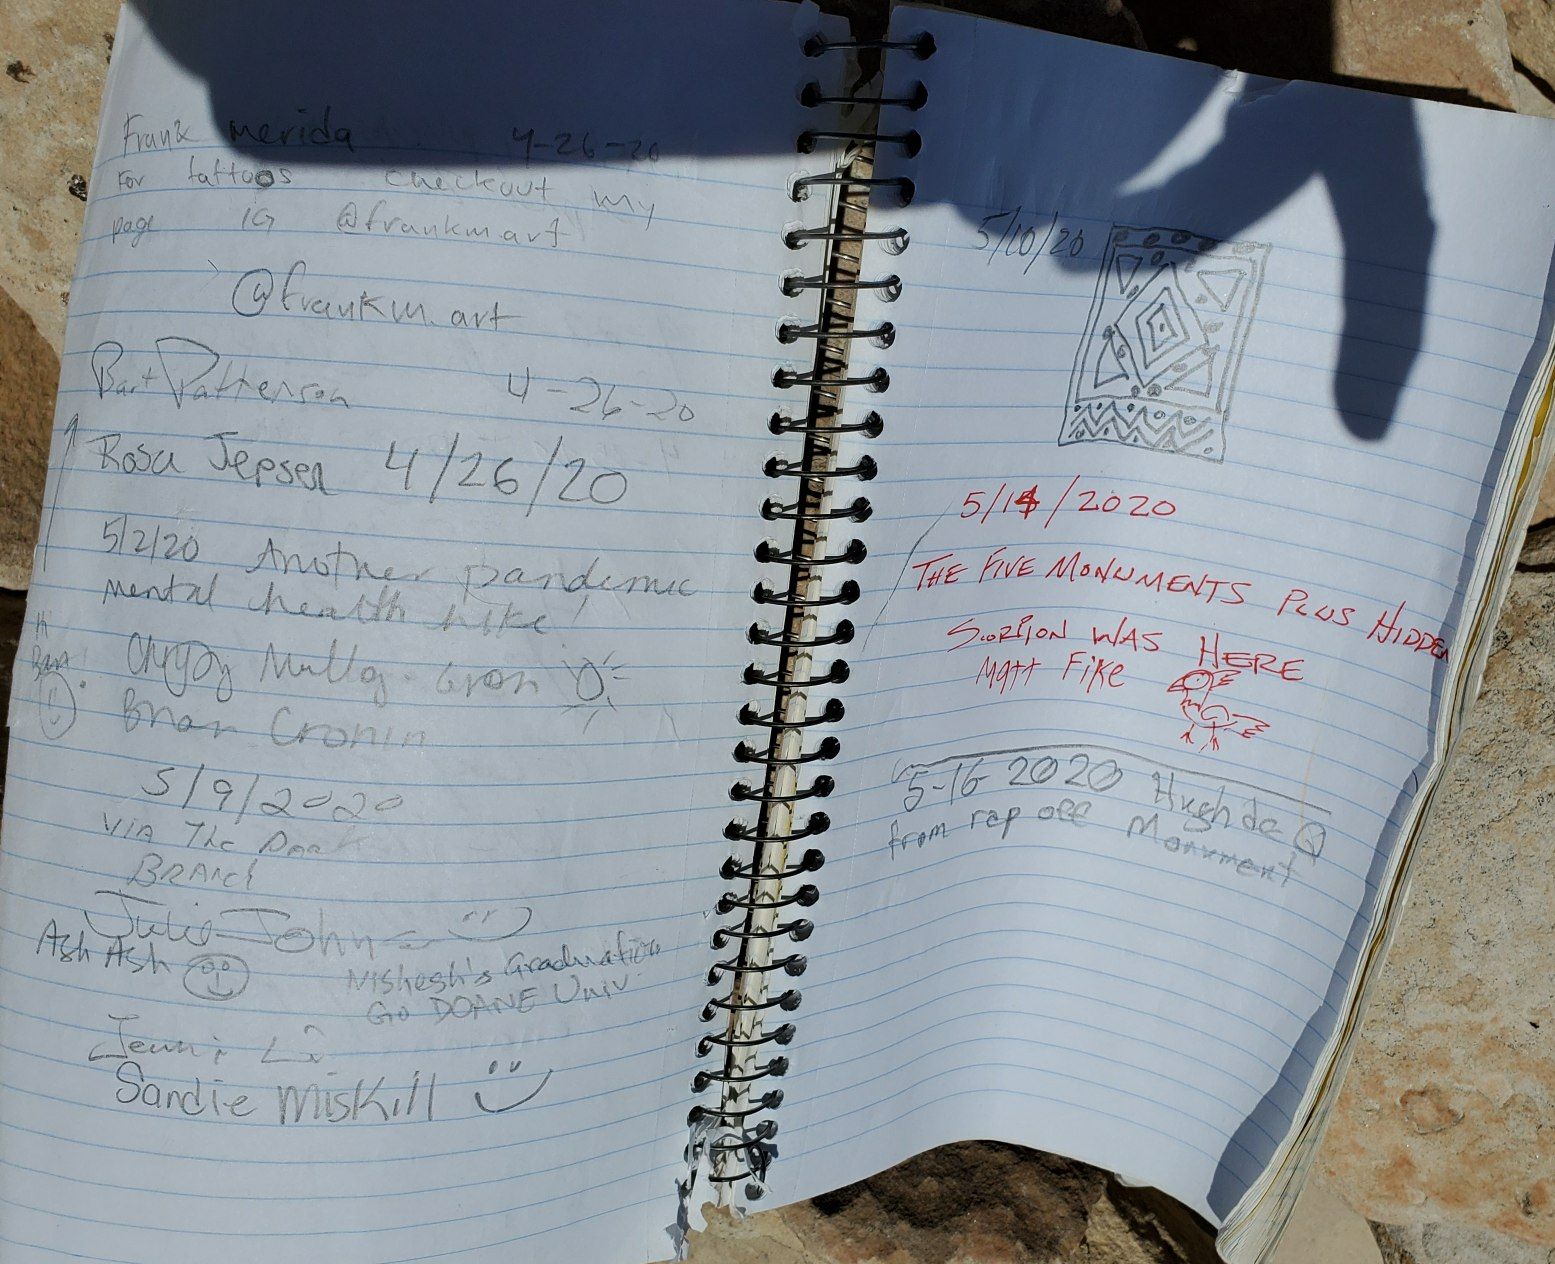 Frank merida 4-26-20
For tattoos checkout my
page IG @frankm.art
@frankm.art
Bart Patterson 4-26-20
Rosa Jepsen 4/26/20
5/2/20 Another pandemic
mental health hike!
Hi
Brian Cronin
5/9/2020
via The
BRANCH
Julie
Ash Ash Nishesh's Graduation
Go DOANE Univ
Jenni
Sandie Miskill
5/10/20
5/14/2020
THE FIVE MONUMENTS PLUS HIDDEN
SCORPION WAS HERE
Matt Fike
5-16 2020 Hugh de Q
from rap off Monument